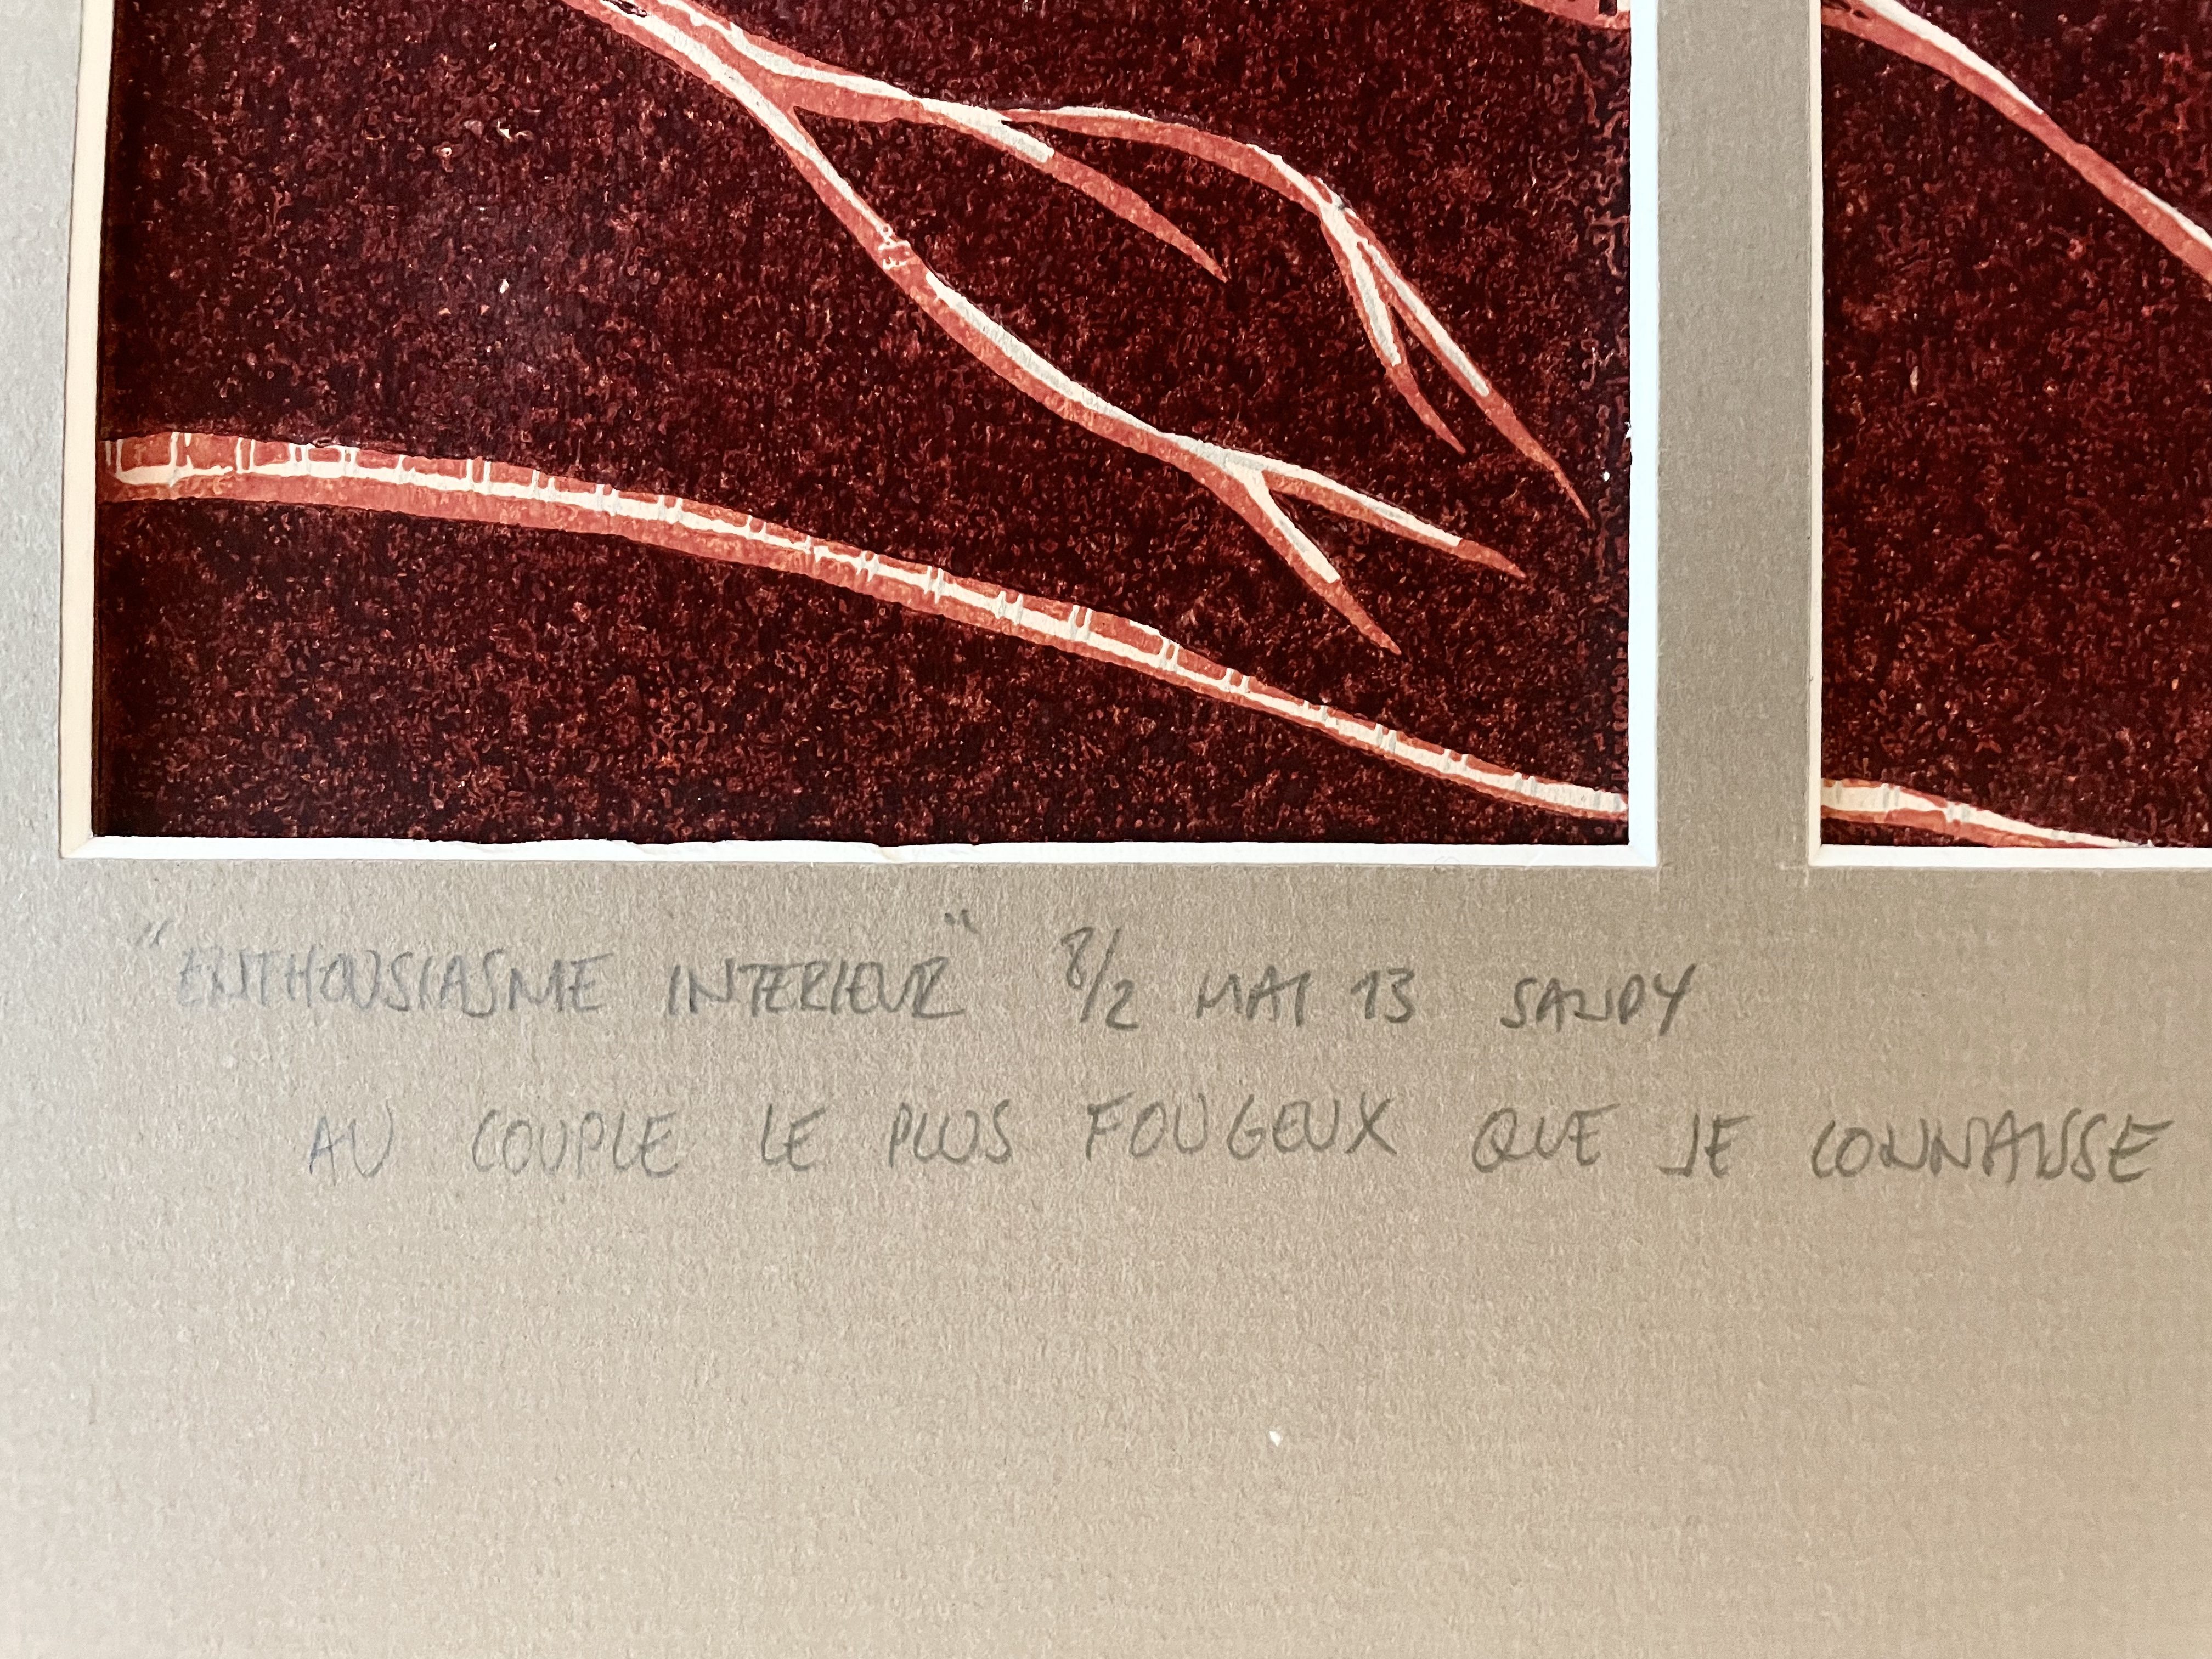 "ENTHOUSIASME INTERIEUR" 8/2 MAI 13 SANDY
AU COUPLE LE PLUS FOUGEUX QUE JE CONNAISSE